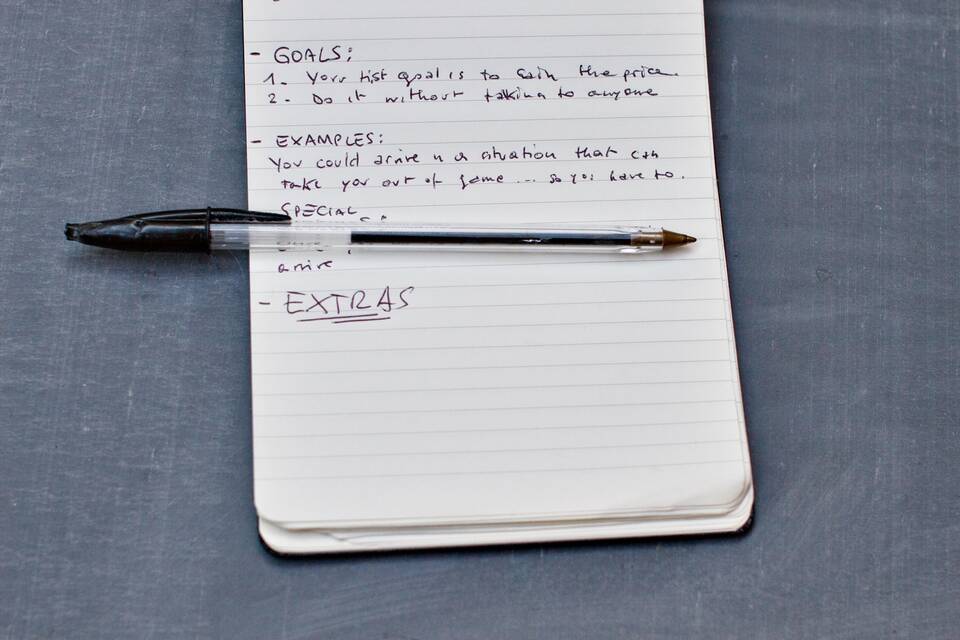 - GOALS:
1. Your fist goal is to gain the price.
2. Do it without talking to anyone
- EXAMPLES:
You could arrive in a situation that can
take you out of game ... so you have to.
SPECIAL
arrive
- EXTRAS